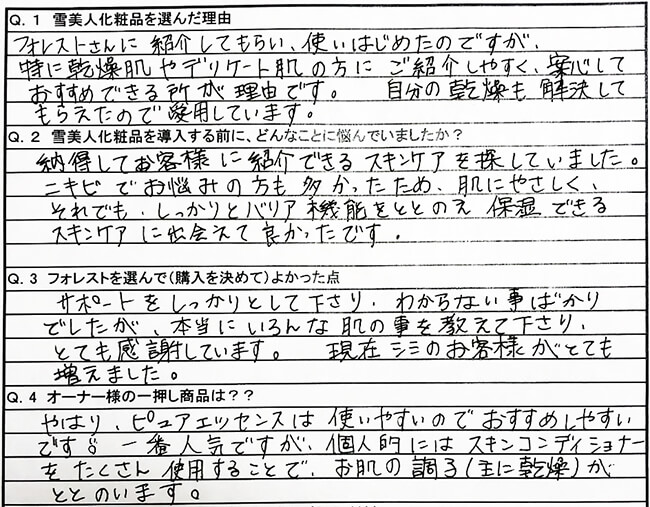 Q. 1 雪美人化粧品を選んだ理由
フォレストさんに紹介してもらい、使いはじめたのですが、
特に乾燥肌やデリケート肌の方にご紹介しやすく、安心して
おすすめできる所が理由です。 自分の乾燥も解決して
もらえたので愛用しています。
Q. 2 雪美人化粧品を導入する前に、どんなことに悩んでいましたか？
納得してお客様に紹介できるスキンケアを探していました。
ニキビでお悩みの方も多かったため、肌にやさしく、
それでも、しっかりとバリア機能をととのえ保湿できる
スキンケアに出会えて良かったです。
Q. 3 フォレストを選んで(購入を決めて)よかった点
サポートをしっかりとして下さり、わからない事ばかり
でしたが、本当にいろんな肌の事を教えて下さり、
とても感謝しています。 現在シミのお客様がとても
増えました。
Q. 4 オーナー様の一押し商品は？？
やはり、ピュアエッセンスは使いやすいのでおすすめしやすい
です。一番人気ですが、個人的にはスキンコンディショナー
をたくさん使用することで、お肌の調子(主に乾燥)が
ととのいます。